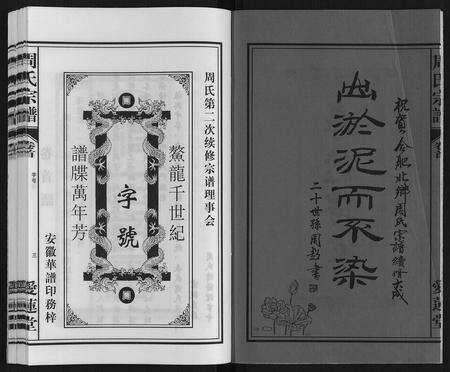 祝賀合肥北鄉周氏宗譜續修大成
出淤泥而不染
二十世孫周
書
周氏宗譜
卷首
愛蓮堂
周氏第二次续修宗谱理事会
鰲龍千世紀
字號
譜牒萬年芳
安徽華譜印務梓
周氏宗譜
卷首
字号
三
愛蓮堂